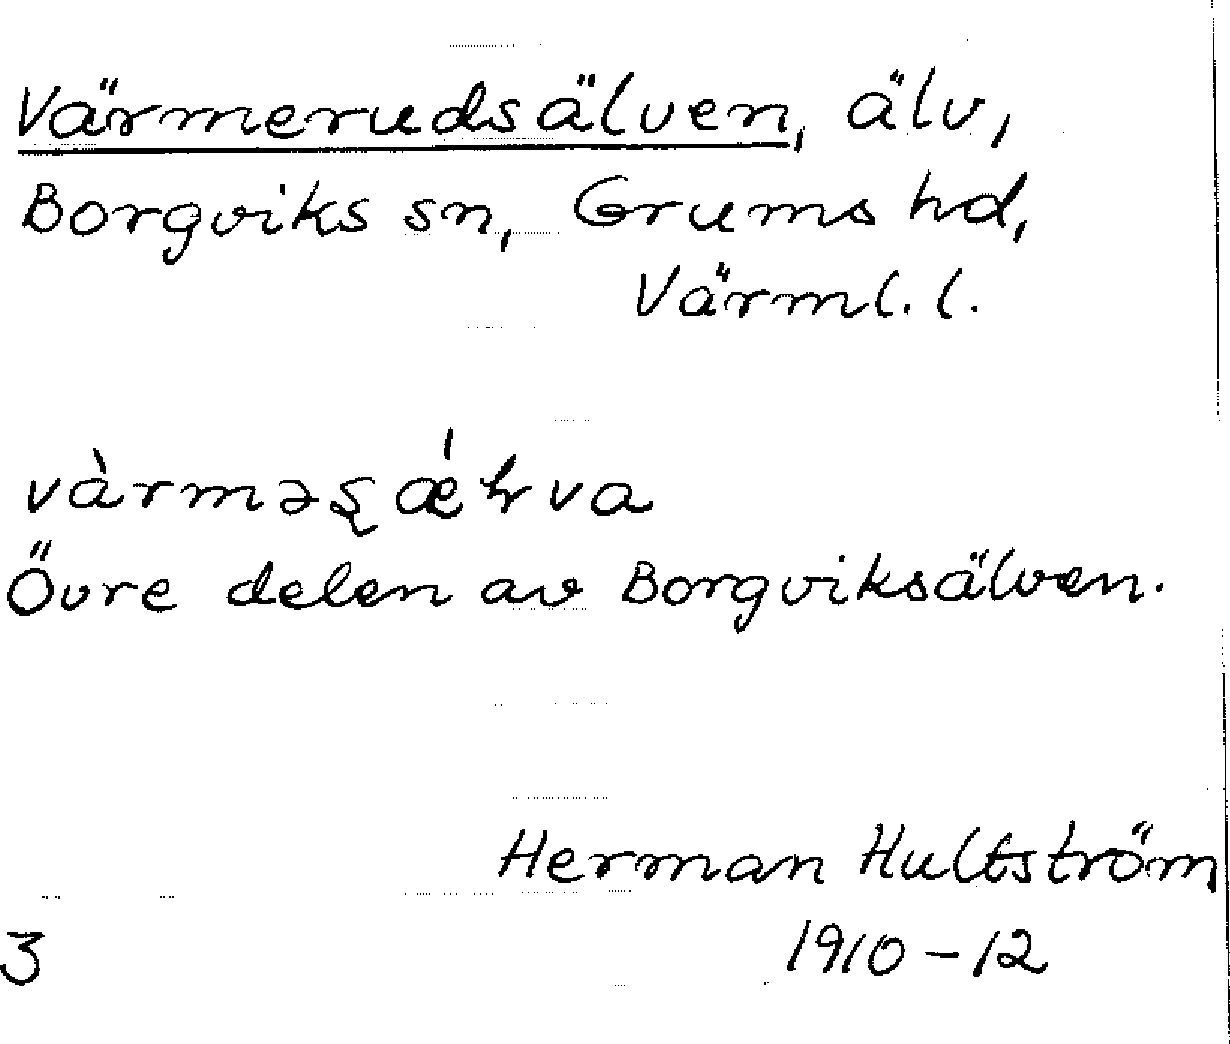 Värmerudsälven, älv,
Borgviks sn, Grums hd,
Värml. l.
Övre delen av Borgviksälven.
Herman Hultström
3 1910-12